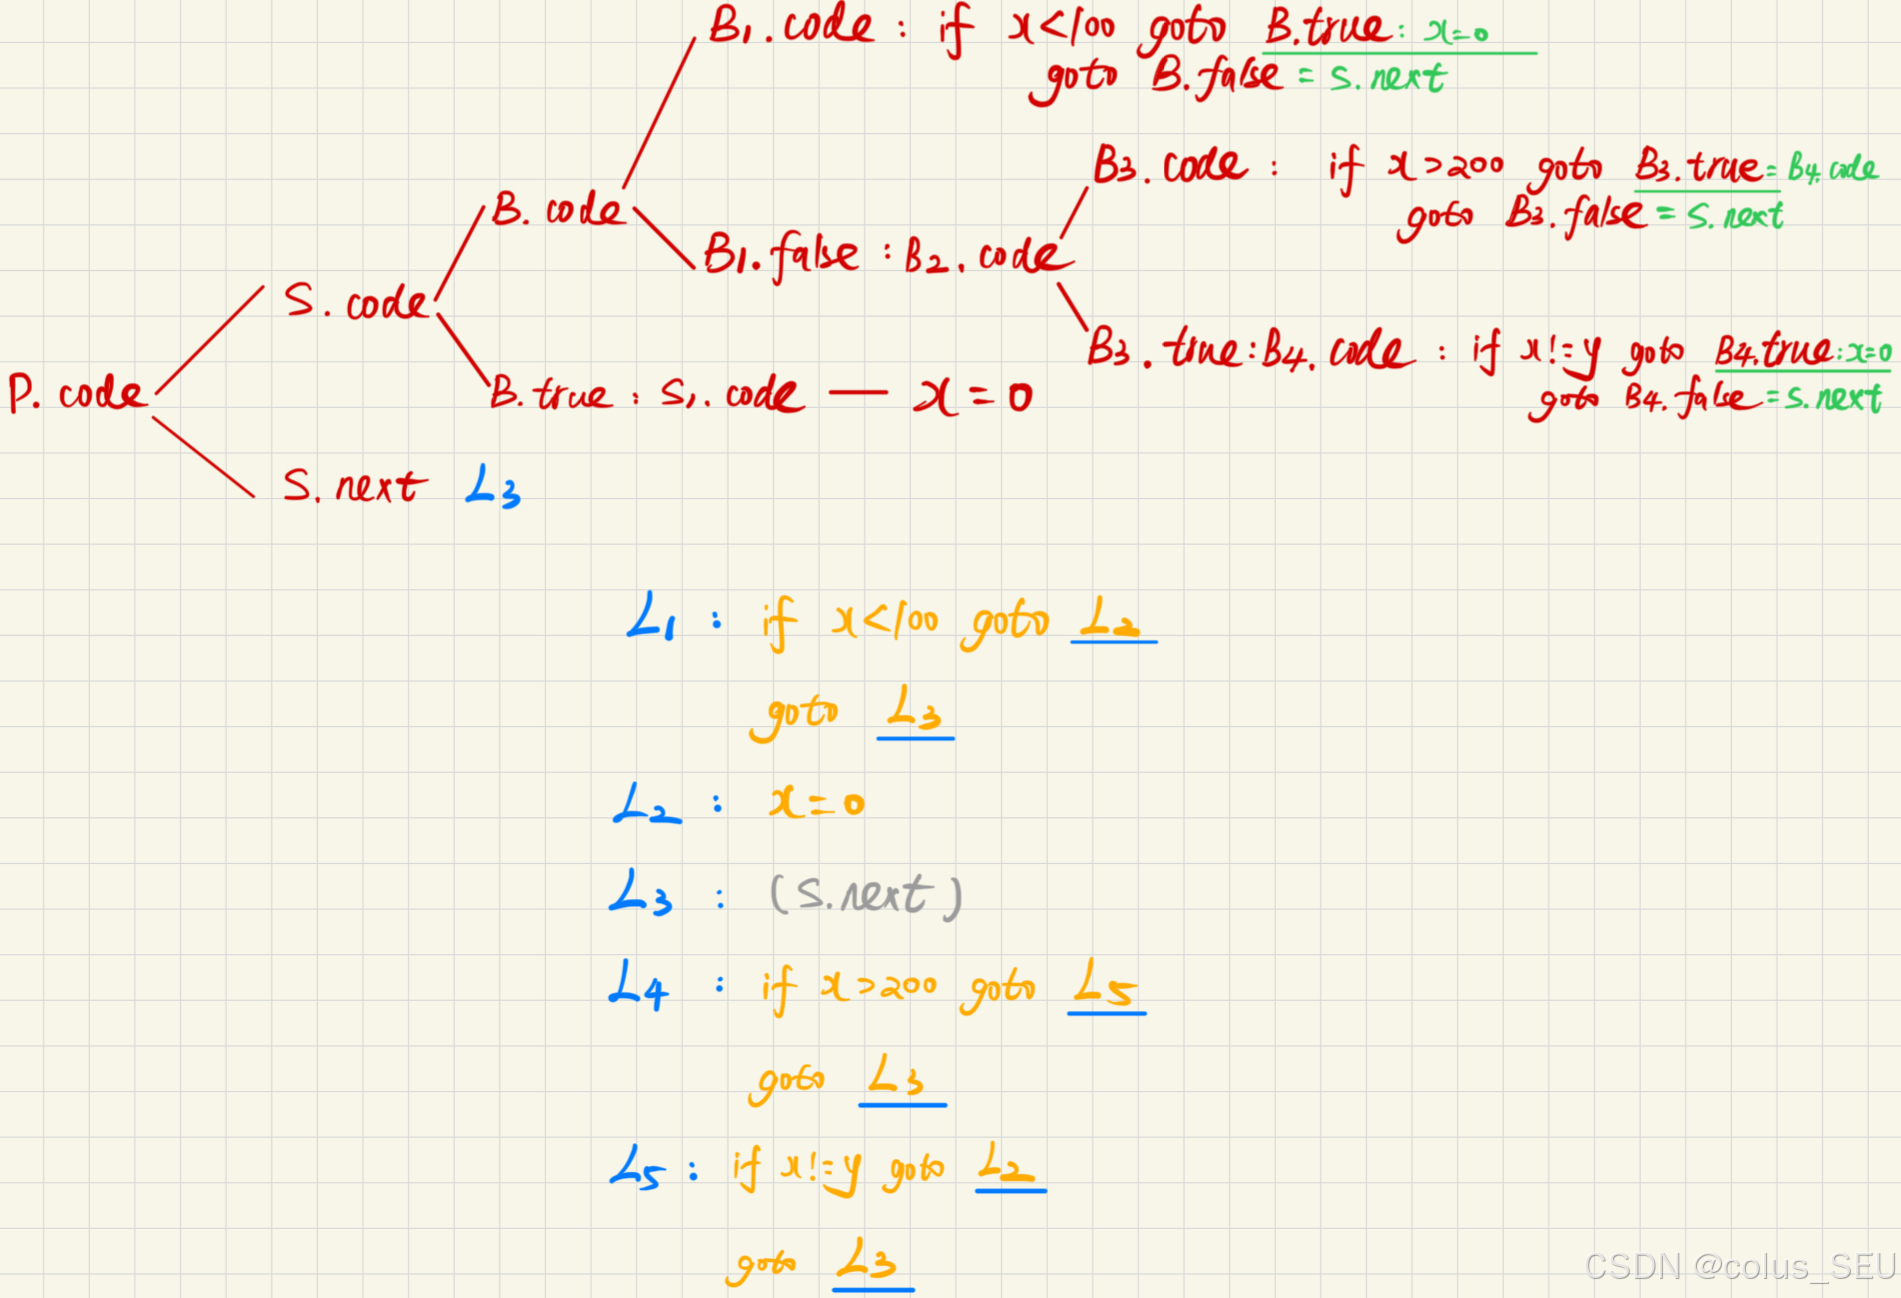 B1.code : if x<100 goto B.true: x=0
goto B.false = S.next
B3.code : if x>200 goto B3.true= B4.code
goto B3.false = S.next
B.code
B1.false : B2.code
S.code
B3.true:B4.code : if x!=y goto B4.true:x=0
goto B4.false =S.next
P.code
B.true : S1.code — x=0
S.next L3
L1 : if x<100 goto L2
goto L3
L2 : x=0
L3 : (S.next)
L4 : if x>200 goto L5
goto L3
L5 : if x!=y goto L2
goto L3
CSDN @colus_SEU